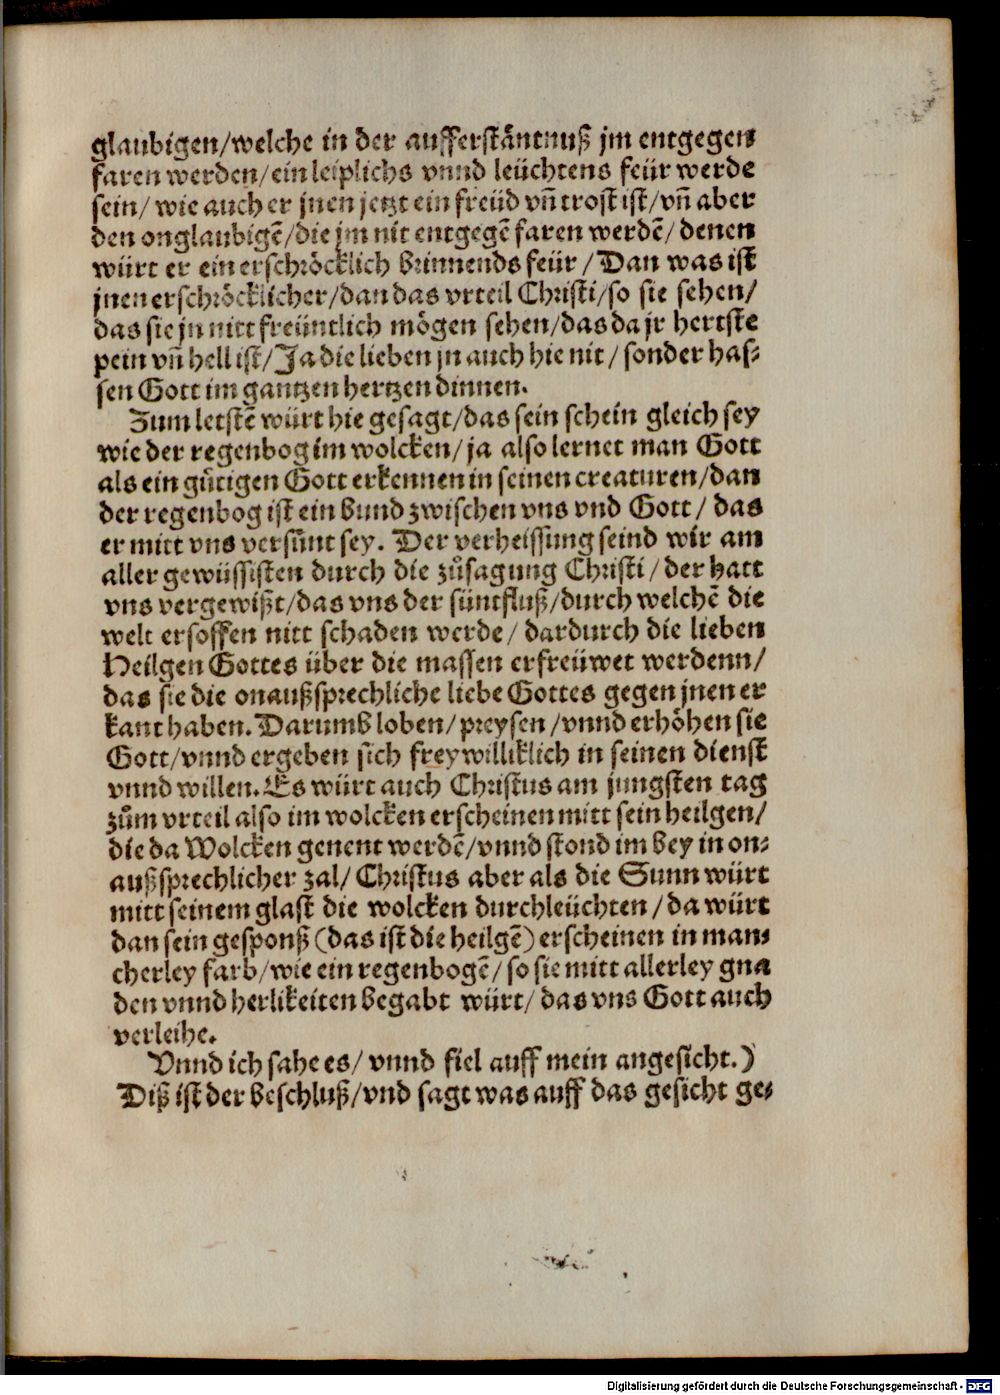 glaubigen/welche in der aufferständtnuß jm entgegen
faren werden/ein leiplichs vnnd leüchtens feür werde
sein/ wie auch er jnen jetzt ein freüd vñ trost ist/vñ aber
den onglaubigẽ/die jm nit entgegẽ faren werdẽ/ denen
würt er ein erschröcklich brinnends feür/Dan was ist
jnen erschröcklicher/dan das vrteil Christi/so sie sehen/
das sie jn nitt freüntlich mögen sehen/das da jr hertste
pein vñ hell ist/Ja die lieben jn auch hie nit/ sonder has⸗
sen Gott im gantzen hertzen dinnen.
Zum letstẽ würt hie gesagt/das sein schein gleich sey
wie der regenbog im wolcken/ja also lernet man Gott
als ein gütigen Gott erkennen in seinen creaturen/dan
der regenbog ist ein bund zwischen vns vnd Gott/ das
er mitt vns versünt sey. Der verheissung seind wir am
aller gewüssisten durch die zůsagung Christi/ der hatt
vns vergewißt/das vns der süntfluß/durch welchẽ die
welt ersoffen nitt schaden werde/ dardurch die lieben
Heilgen Gottes über die massen erfreüwet werdenn/
das sie die onaußsprechliche liebe Gottes gegen jnen er
kant haben. Darumb loben/preysen/vnnd erhöhen sie
Gott/vnnd ergeben sich freywilliklich in seinen dienst
vnnd willen. Es würt auch Christus am jungsten tag
zům vrteil also im wolcken erscheinen mitt sein heilgen/
die da Wolcken genent werdẽ/vnnd stond im bey in on⸗
außsprechlicher zal/ Christus aber als die Sunn würt
mitt seinem glast die wolcken durchleüchten/da würt
dan sein gesponß (das ist die heilgẽ) erscheinen in man⸗
cherley farb/wie ein regenbogẽ/so sie mitt allerley gna
den vnnd herlikeiten begabt würt/ das vns Gott auch
verleihe.
Vnnd ich sahe es/ vnnd fiel auff mein angesicht.)
Diß ist der beschluß/vnd sagt was auff das gesicht ge⸗
Digitalisierung gefördert durch die Deutsche Forschungsgemeinschaft - DFG